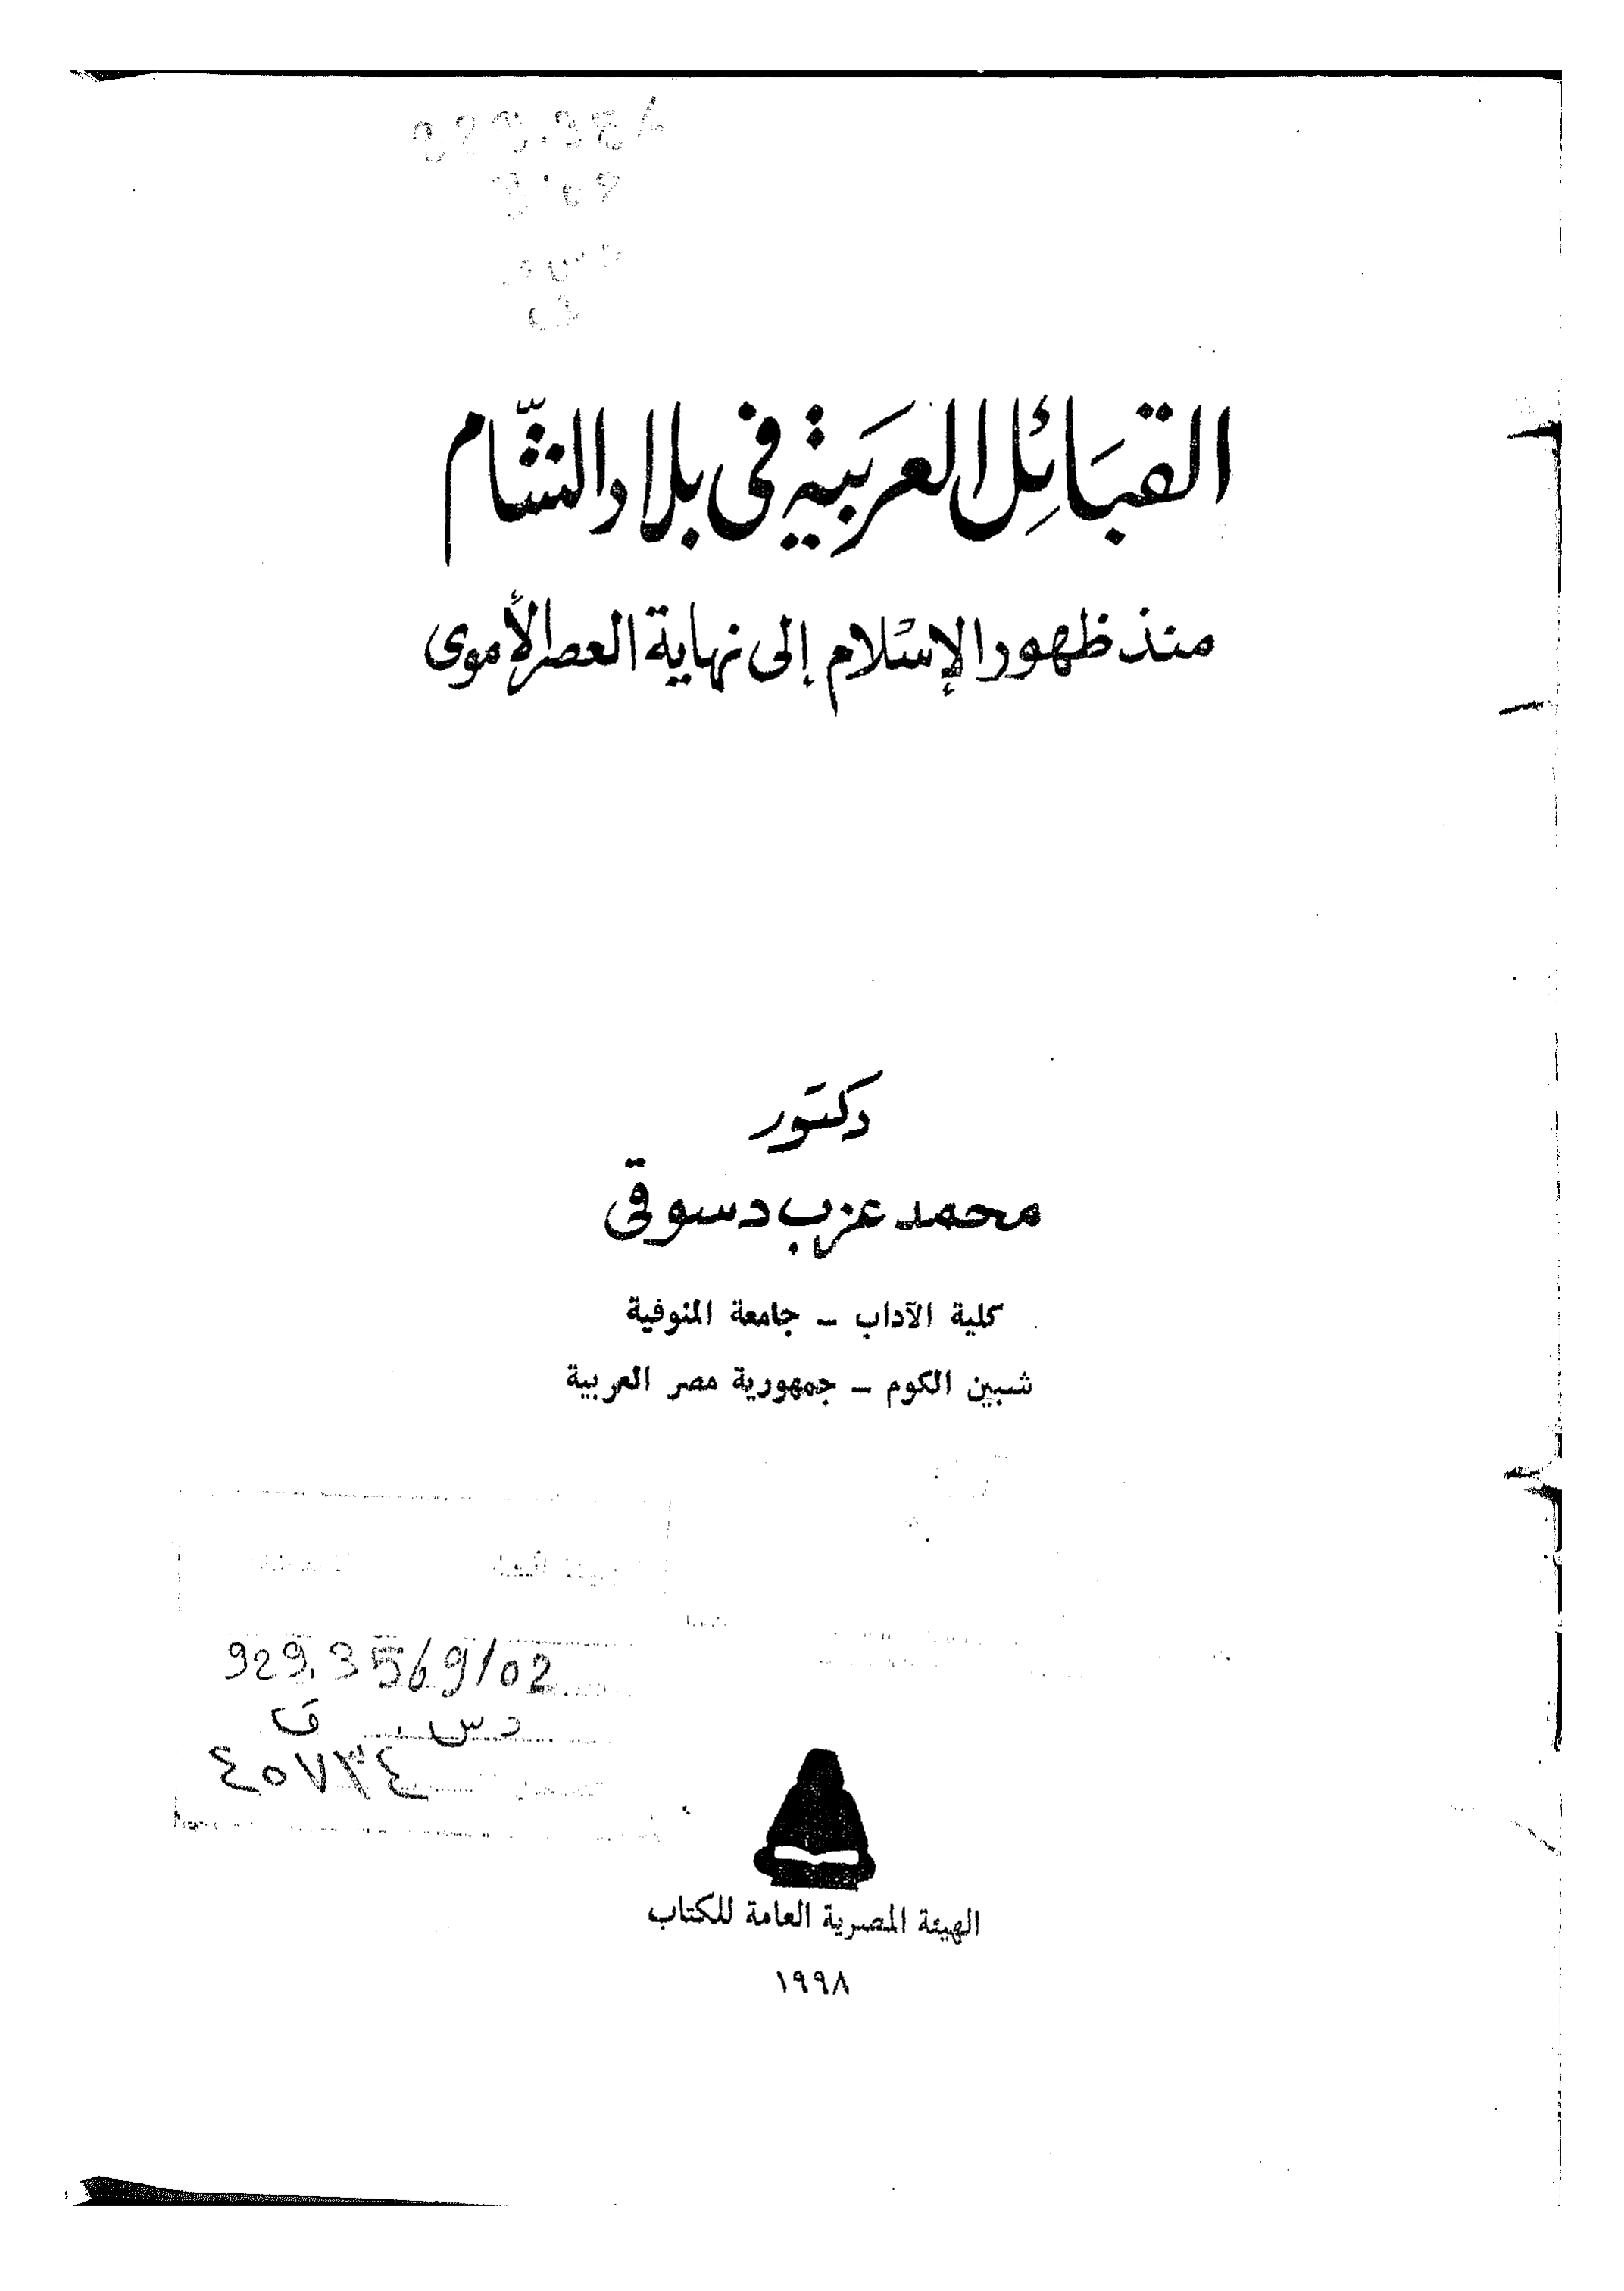 القبائل العربية فى بلاد الشام
منذ ظهور الإسلام إلى نهاية العصر الأموى
دكتور
محمد عزب دسوقى
كلية الآداب – جامعة المنوفية
شبين الكوم – جمهورية مصر العربية
929.3569/02
د س . ق
٤٥٧٣٤
الهيئة المصرية العامة للكتاب
١٩٩٨